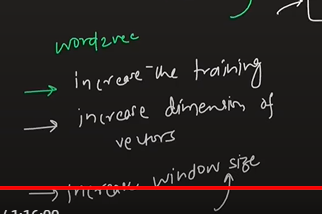 word2vec
→ increase the training
→ increase dimension of
vectors
→ increase window size
1:16:00